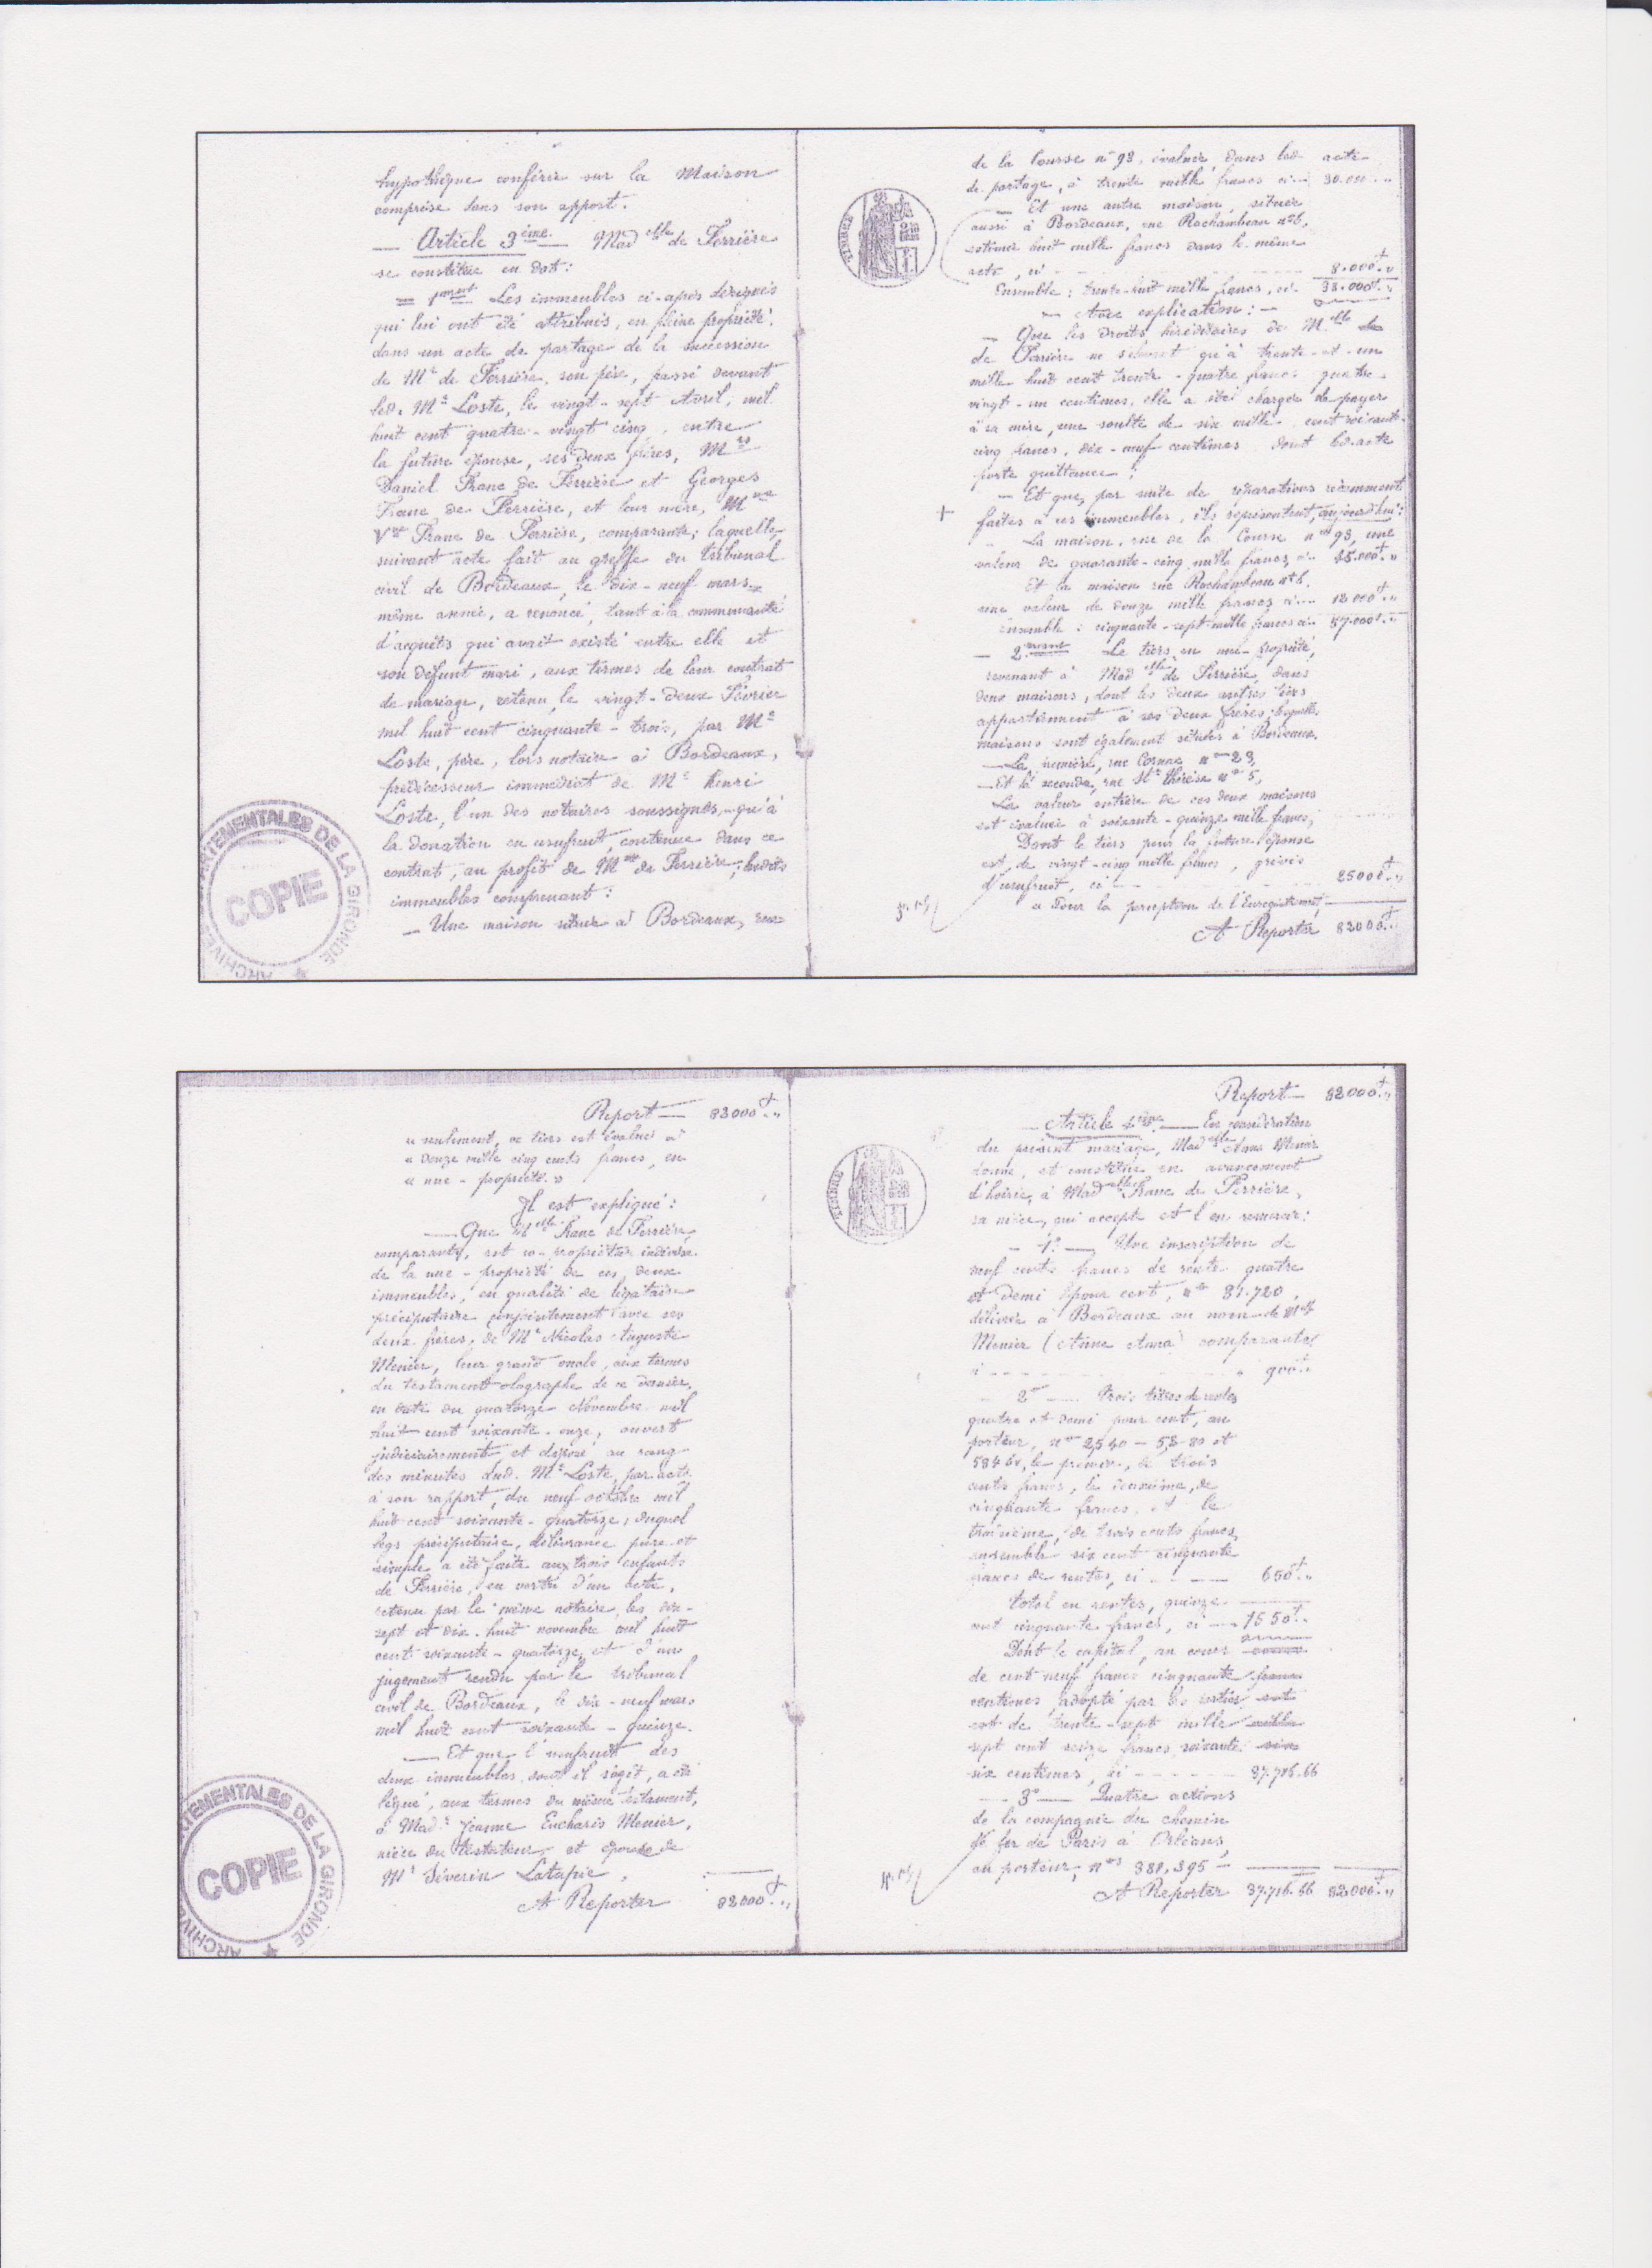 hypothèque conférée sur la Maison
comprise dans son apport.
— Article 3ème — Mad elle de Ferrière
se constitue en dot :
= 1ment Les immeubles ci-après désignés
qui lui ont été attribués, en pleine propriété,
dans un acte de partage de la succession
de Mr de Ferrière, son père, passé devant
led. Me Loste, le vingt-sept Avril, mil
huit cent quatre-vingt cinq, entre
la future épouse, ses deux frères, Mrs
Daniel Franc de Ferrière et Georges
Franc de Ferrière, et leur mère, Mme
Vve Franc de Ferrière, comparante; laquelle,
suivant acte fait au greffe du tribunal
civil de Bordeaux, le dix-neuf mars
même année, a renoncé, tant à la communauté
d'acquêts qui avait existé entre elle et
son défunt mari, aux termes de leur contrat
de mariage, retenu le vingt-deux Février
mil huit cent cinquante-trois, par Me
Loste, père, lors notaire à Bordeaux,
prédécesseur immédiat de Me Henri
Loste, l'un des notaires soussignés, qu'à
la donation en usufruit, contenue dans ce
contrat, au profit de Mme de Ferrière; lesdits
immeubles comprenant :
— Une maison située à Bordeaux, rue
ARCHIVES DÉPARTEMENTALES DE LA GIRONDE
COPIE
TIMBRE
de la Course n° 93, évaluée, dans led. acte
de partage, à trente mille francs ci... 30.000 "
— Et une autre maison, située
aussi à Bordeaux, rue Rochambeau n° 6,
estimée huit mille francs dans le même
acte, ci — 8.000f "
Ensemble : trente-huit mille francs, ci. 38.000f "
— Avec explication : —
— Que les droits héréditaires de Melle
de Ferrière ne s'élevant qu'à trente-et-un
mille huit cent trente-quatre francs quatre-
vingt-un centimes, elle a été chargée de payer
à sa mère, une soulte de six mille cent soixante-
cinq francs, dix-neuf centimes dont led. acte
porte quittance ;
— Et que, par suite de réparations récemment
faites à ces immeubles, ils représentent, aujourd'hui :
La maison, rue de la Course n° 93, une
valeur de quarante-cinq mille francs, ci 45.000f "
Et la maison rue Rochambeau n° 6,
une valeur de douze mille francs ci... 12.000f "
Ensemble : cinquante-sept mille francs ci. 57.000f "
— 2ment Le tiers, en nue-propriété,
revenant à Mad elle de Ferrière, dans
deux maisons, dont les deux autres tiers
appartiennent à ses deux frères; lesquelles
maisons sont également situées à Bordeaux.
— La première, rue Cornac n° 23,
— Et la seconde, rue Ste Thérèse n° 5,
La valeur entière de ces deux maisons
est évaluée à soixante-quinze mille francs,
Dont le tiers pour la future épouse
est, de vingt-cinq mille francs, grevés
d'usufruit, ci — 25000f "
« Pour la perception de l'Enregistrement,
A Reporter 82000f "
Report — 82000f "
« seulement, ce tiers est évalué à
« douze mille cinq cents francs, en
« nue-propriété. »
Il est expliqué :
— Que Melle Franc de Ferrière,
comparante, est co-propriétaire indivise
de la nue-propriété de ces deux
immeubles, en qualité de légataire
préciputaire conjointement avec ses
deux frères, de Mr Nicolas Auguste
Menier, leur grand oncle, aux termes
du testament olographe de ce dernier,
en date du quatorze Novembre mil
huit cent soixante-onze, ouvert
judiciairement et déposé au rang
des minutes dud. Me Loste, par acte
à son rapport, du neuf octobre mil
huit cent soixante-quatorze, duquel
legs préciputaire, délivrance pure et
simple a été faite aux trois enfants
de Ferrière, en vertu d'un acte,
retenu par le même notaire, les dix-
sept et dix-huit novembre mil huit
cent soixante-quatorze, et d'un
jugement rendu par le tribunal
civil de Bordeaux, le dix-neuf mars
mil huit cent soixante-quinze.
— Et que l'usufruit des
deux immeubles, dont il s'agit, a été
légué, aux termes du même testament,
à Made Jeanne Eucharis Menier,
nièce du testateur, et épouse de
Mr Séverin Latapie,
A Reporter 82000f "
ARCHIVES DÉPARTEMENTALES DE LA GIRONDE
COPIE
TIMBRE
Report — 82000f "
— Article 4ème — En considération
du présent mariage, Mad elle Anna Menier
donne, et constitue en avancement
d'hoirie, à Mad elle Franc de Ferrière,
sa nièce, qui accepte et l'en remercie :
— 1° — Une inscription de
neuf cents francs de rente quatre
et demi pour cent, n° 31.720,
délivrée à Bordeaux au nom de Melle
Menier (Anne Anna) comparante,
ci — 900f "
— 2° — Trois titres de rentes
quatre et demi pour cent, au
porteur, nos 2540 — 5380 et
58460, le premier, de trois
cents francs, le deuxième, de
cinquante francs, et le
troisième, de trois cents francs,
ensemble six cent cinquante
francs de rentes, ci — 650f "
Total en rentes, quinze
cent cinquante francs, ci — 1550f "
Dont le capital, au cours
de cent neuf francs cinquante
centimes, adopté par les parties
est de trente-sept mille
sept cent seize francs soixante
six centimes, ci — 37.716.66
— 3° — Quatre actions
de la compagnie du chemin
de fer de Paris à Orléans,
au porteur, nos 381,395 —
A Reporter 37.716.66 82.000f "